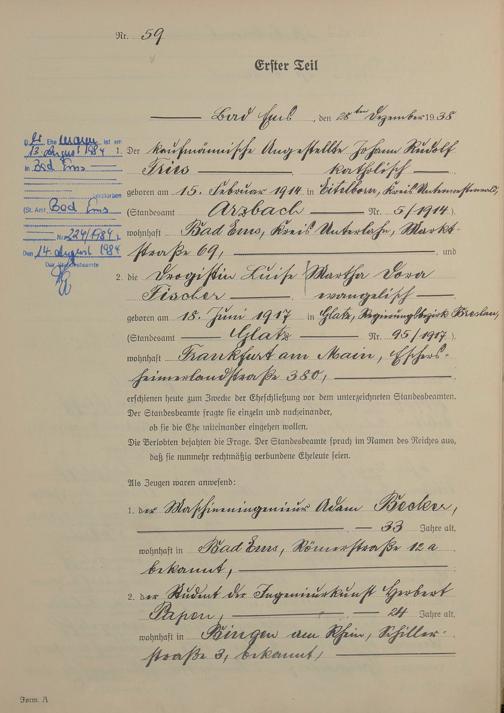 Nr. 59
Erster Teil
Bad Ems, den 28ten Dezember 1938
Ehemann ist am
13. August 1984
in Bad Ems
verstorben
(St. Amt Bad Ems
Nr. 224/1984)
Den 14. August 1984
Der Standesbeamte
1. Der kaufmännische Angestellte Johann Rudolf
Fries katholisch
geboren am 15. Februar 1914 in Eitelborn, Kreis Unterwesterwald,
(Standesamt Arzbach Nr. 5/1914).
wohnhaft Bad Ems, Kreis Unterlahn, Markt-
straße 69, und
2. die Drogistin Luise Martha Dora
Fischer evangelisch
geboren am 18. Juni 1917 in Glatz, Regierungsbezirk Breslau,
(Standesamt Glatz Nr. 95/1917).
wohnhaft Frankfurt am Main, Eschers-
heimerlandstraße 380,
erschienen heute zum Zwecke der Eheschließung vor dem unterzeichneten Standesbeamten.
Der Standesbeamte fragte sie einzeln und nacheinander,
ob sie die Ehe miteinander eingehen wollen.
Die Verlobten bejahten die Frage. Der Standesbeamte sprach im Namen des Reiches aus,
daß sie nunmehr rechtmäßig verbundene Eheleute seien.
Als Zeugen waren anwesend:
1. der Maschineningenieur Adam Becker,
33 Jahre alt,
wohnhaft in Bad Ems, Römerstraße 12 a
bekannt,
2. der Student der Ingenieurkunst Herbert
Papen, 24 Jahre alt,
wohnhaft in Bingen am Rhein, Schiller-
straße 3, bekannt,
Form. A